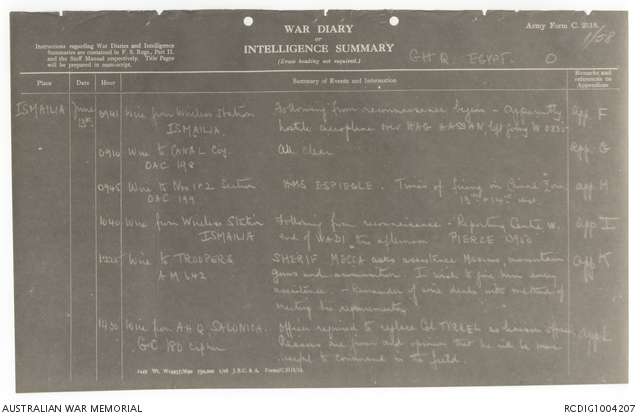 WAR DIARY
or
INTELLIGENCE SUMMARY
(Erase heading not required.)
Army Form C. 2118.
Instructions regarding War Diaries and Intelligence
Summaries are contained in F. S. Regs., Part II.
and the Staff Manual respectively. Title Pages
will be prepared in manuscript.
GHQ EGYPT O
Place Date Hour Summary of Events and Information Remarks and references to Appendices
ISMAILIA June 13th 0941 Wire from Wireless Station Following from reconnaissance begins - Apparently App F
ISMAILIA hostile aeroplane over HAG HASSAN left going
0910 Wire to CANAL Coy All clear App G
OAC 198
0945 Wire to Nos 1 & 2 Section HMS ESPIEGLE. Times of firing on App H
OAC 199 13th & 14th
1040 Wire from Wireless Station Following from reconnaissance - Reporting Centre App I
ISMAILIA end of WADI this afternoon PIERCE
Wire to TROOPERS SHERIF MECCA asks assistance Maxims, mountain App K
AM 642 guns and ammunition. I wish to give him every
assistance. - Remainder of wire deals with method of
meeting his requirements.
1430 Wire from AHQ SALONICA. Officer required to replace Col TYRREL as liaison officer App L
GC 180 cipher
to command in the field.
AUSTRALIAN WAR MEMORIAL
RCDIG1004207